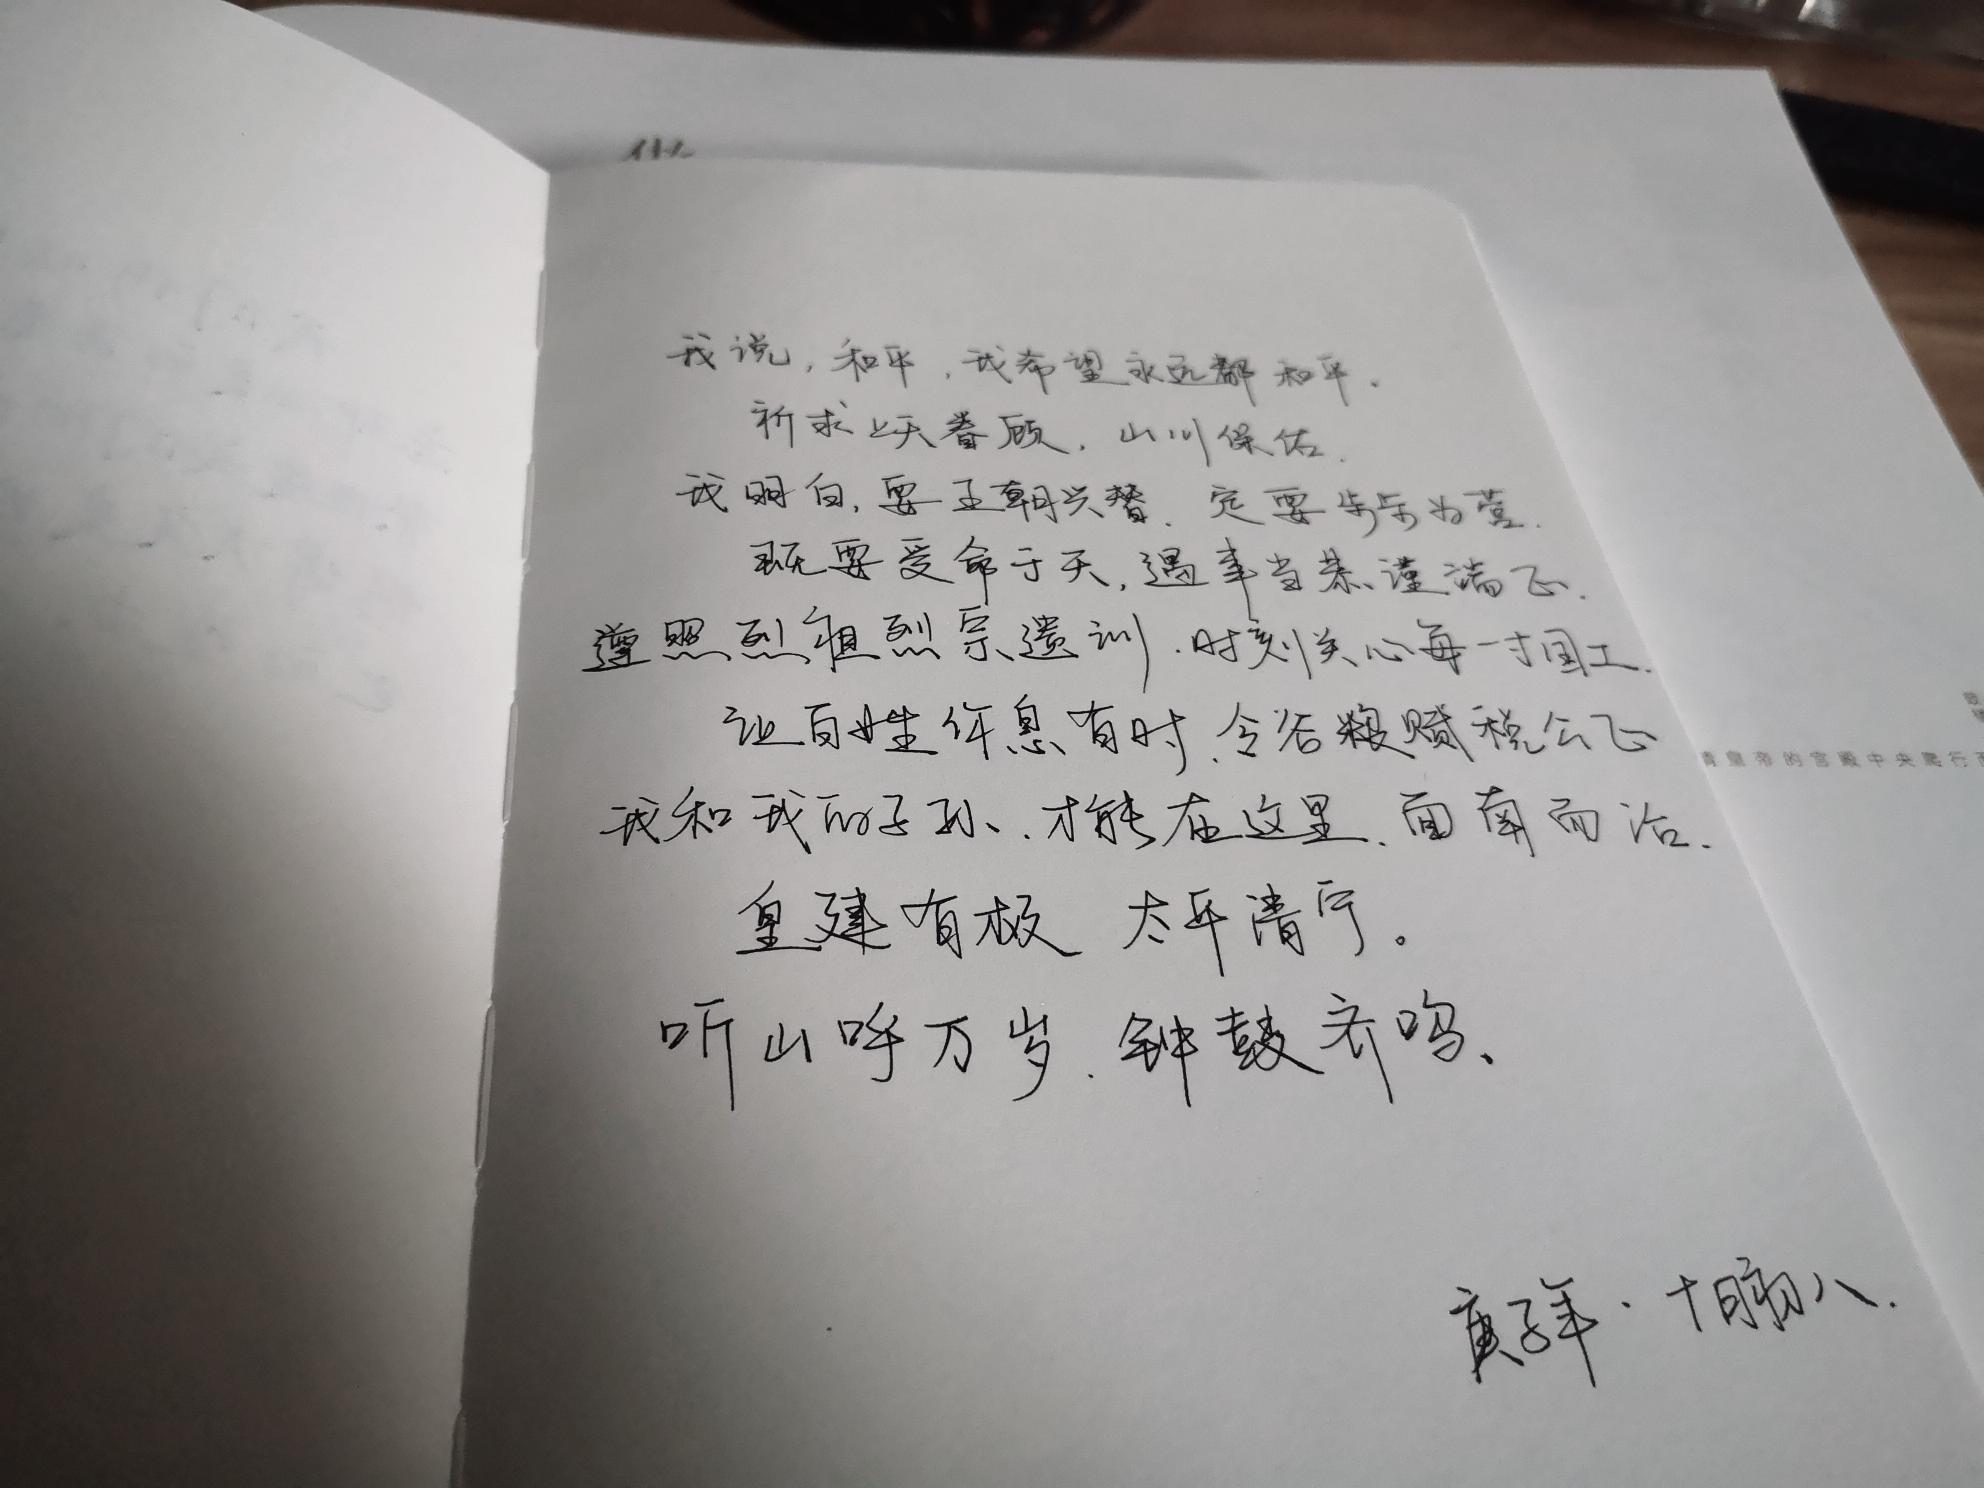 我说,和平,我希望永远都和平.
祈求上天眷顾,山川保佑.
我明白,要王朝兴替、定要步步为营.
既要受命于天,遇事当恭谨端正.
遵照烈祖烈宗遗训.时刻关心每一寸国工.
让百姓作息有时.令谷粮赋税公正
我和我的子孙、.才能在这里.面南而治.
皇建有极 太平清宁。
听山呼万岁.钟鼓齐鸣、
庚子年·十月初八.
清皇帝的宫殿中央爬行